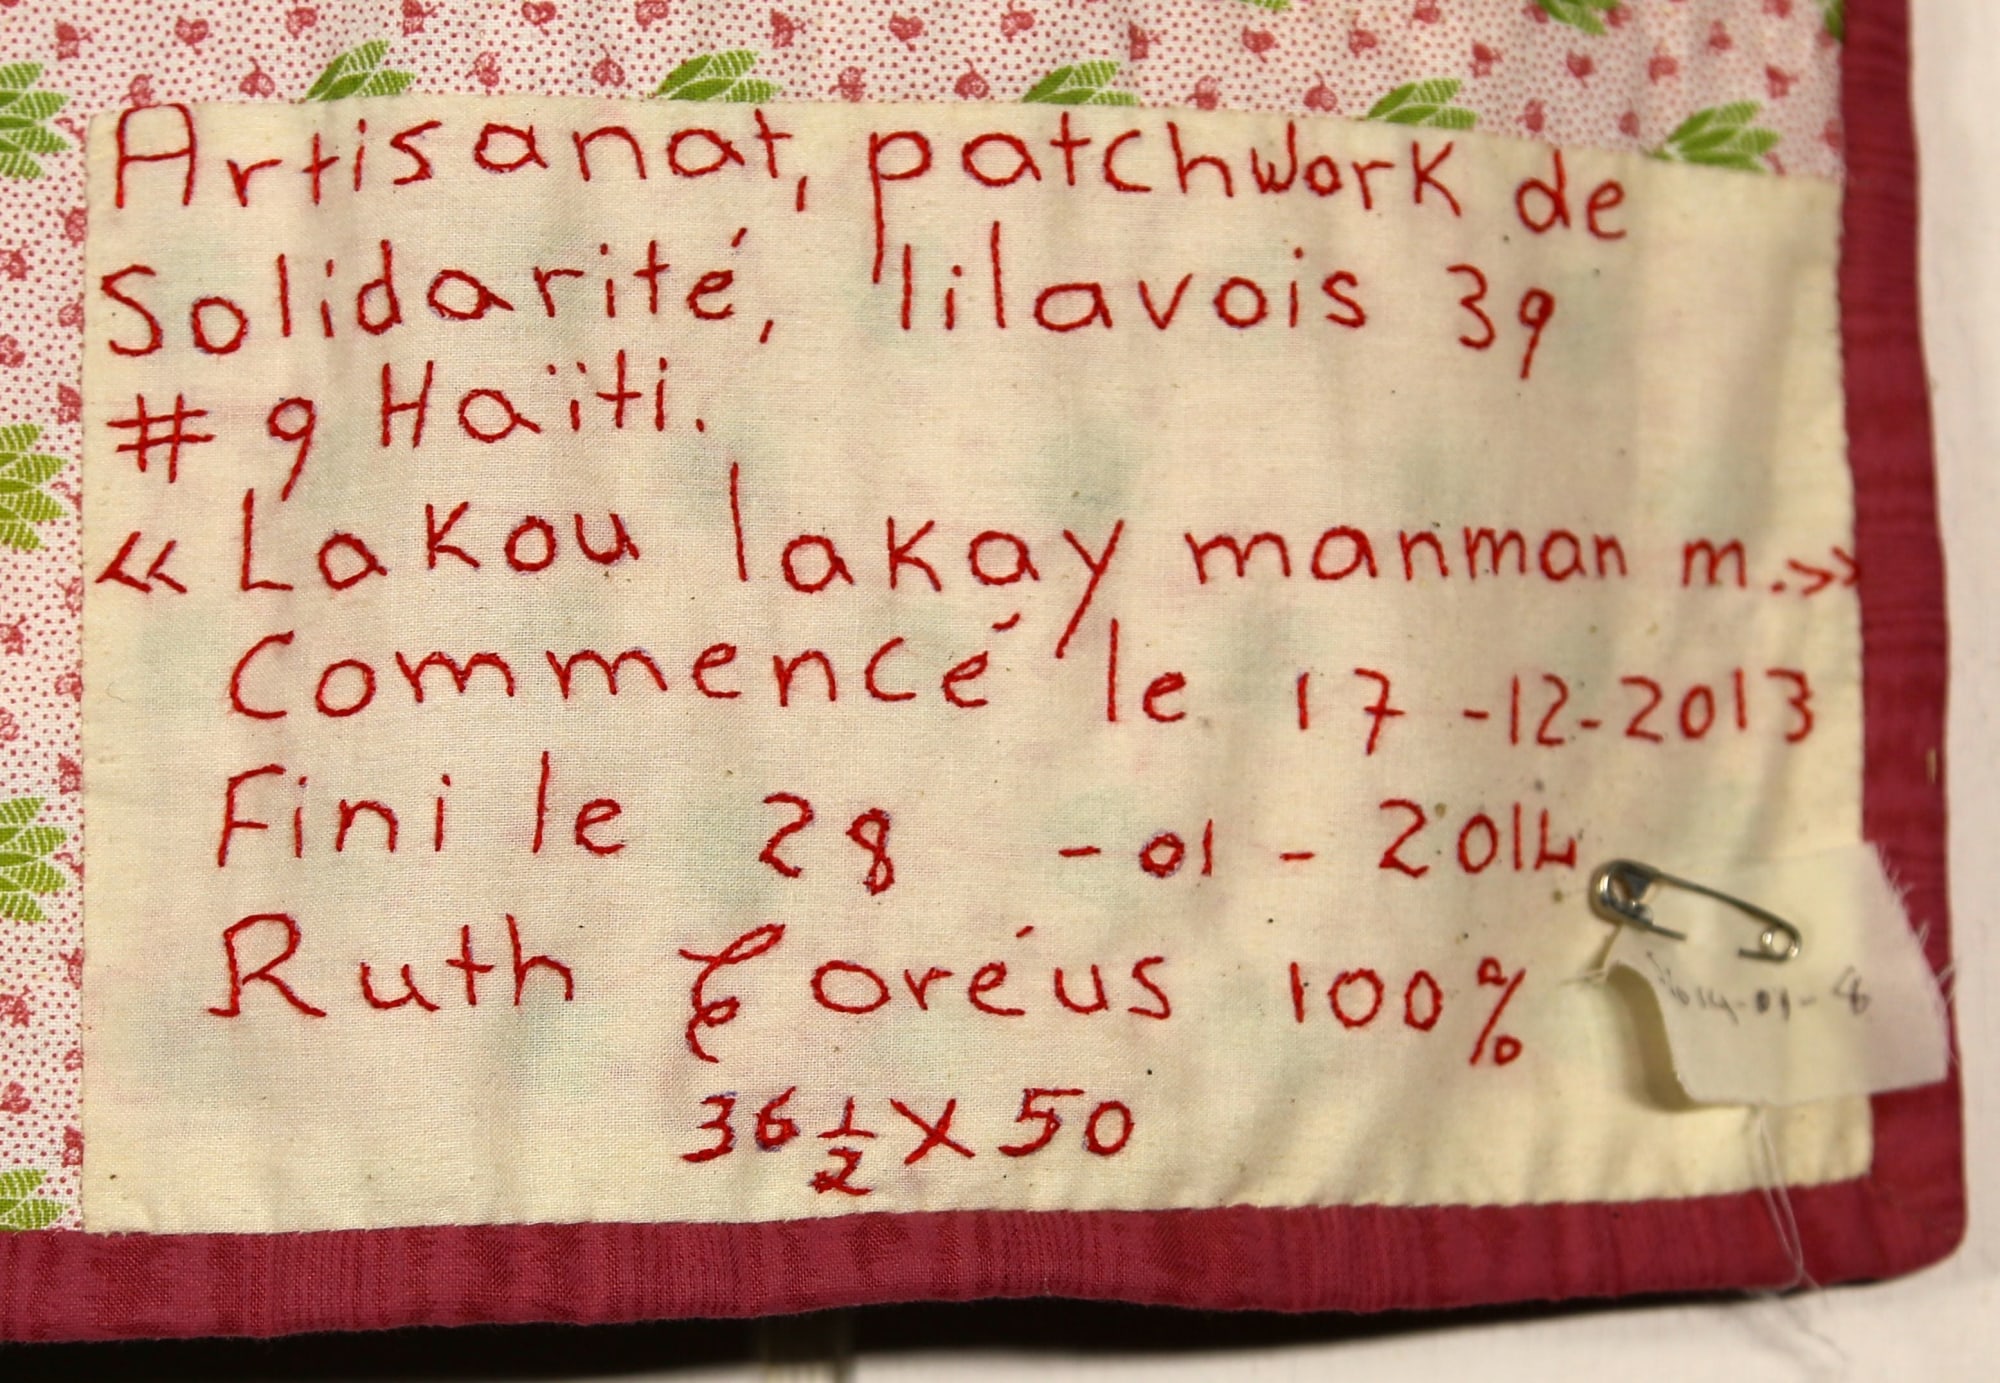 Artisanat, patchwork de
Solidarité, lilavois 39
# 9 Haïti.
« Lakou lakay manman m.»
Commencé le 17-12-2013
Fini le 28-01-2014
Ruth oréus 100%
36 1/2 X 50